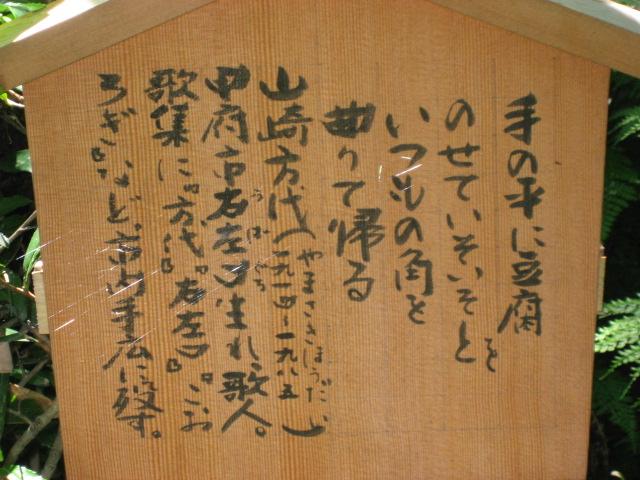 手の平に豆腐を
のせていそいそと
いつもの角を
曲りて帰る
やまさきほうだい
山崎方代(一九一四〜一九八五)
うばぐち
甲府市右左口生れ、歌人。
歌集に『方代』『右左口』『こお
ろぎ』など。市内手広に歿す。